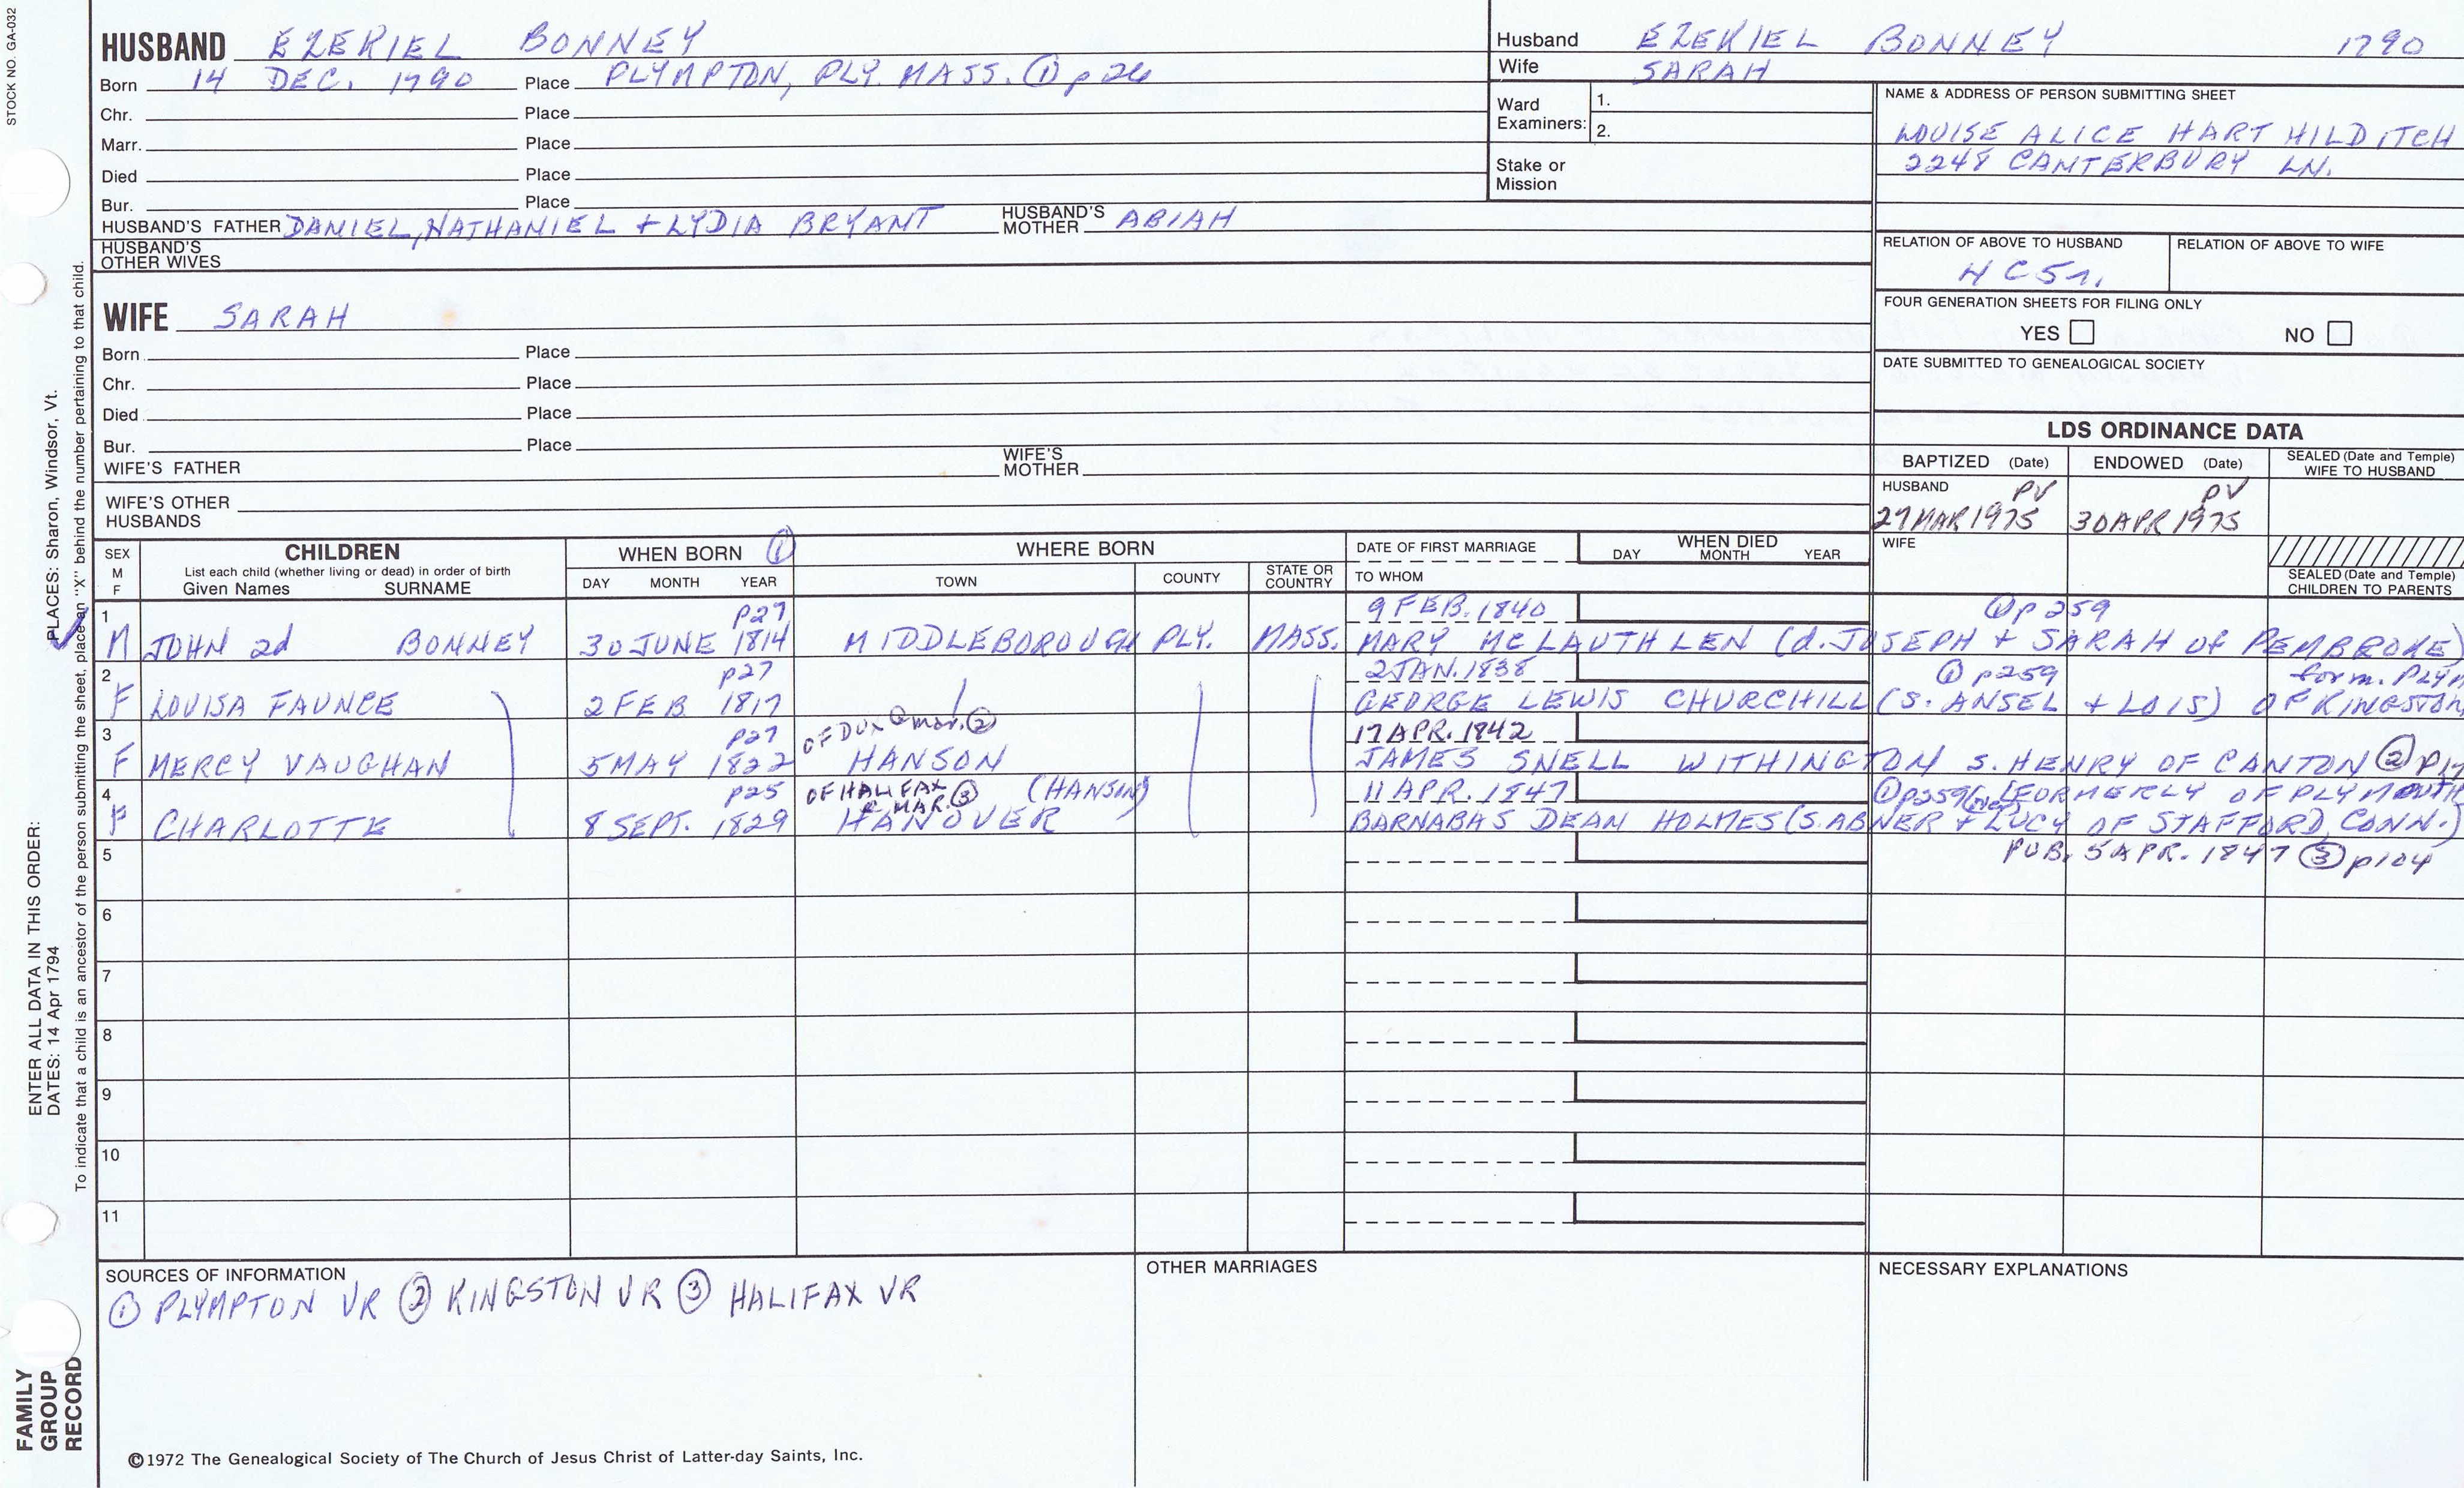 STOCK NO. GA-032
HUSBAND EZEKIEL BONNEY
Born 14 DEC. 1790 Place PLYMPTON, PLY. MASS. ① p 26
Chr. Place
Marr. Place
Died Place
Bur. Place
HUSBAND'S FATHER DANIEL, NATHANIEL + LYDIA BRYANT HUSBAND'S MOTHER ABIAH
HUSBAND'S OTHER WIVES
Husband EZEKIEL BONNEY 1790
Wife SARAH
Ward Examiners: 1.
2.
Stake or Mission
NAME & ADDRESS OF PERSON SUBMITTING SHEET
LOUISE ALICE HART HILDITCH
2248 CANTERBURY LN.
RELATION OF ABOVE TO HUSBAND RELATION OF ABOVE TO WIFE
FOUR GENERATION SHEETS FOR FILING ONLY
YES NO
DATE SUBMITTED TO GENEALOGICAL SOCIETY
WIFE SARAH
Born Place
Chr. Place
Died Place
Bur. Place
WIFE'S FATHER WIFE'S MOTHER
WIFE'S OTHER HUSBANDS
LDS ORDINANCE DATA
BAPTIZED (Date) ENDOWED (Date) SEALED (Date and Temple) WIFE TO HUSBAND
HUSBAND PV PV
27 MAR 1975 30 APR 1975
WIFE
SEALED (Date and Temple) CHILDREN TO PARENTS
SEX M F CHILDREN WHEN BORN ① WHERE BORN DATE OF FIRST MARRIAGE WHEN DIED
List each child (whether living or dead) in order of birth
Given Names SURNAME DAY MONTH YEAR TOWN COUNTY STATE OR COUNTRY TO WHOM DAY MONTH YEAR
1 p27 9 FEB. 1840 ① p 259
M JOHN 2d BONNEY 30 JUNE 1814 MIDDLEBOROUGH PLY. MASS. MARY MC LAUTHLEN (d. JOSEPH + SARAH of PEMBROKE)
2 p27 2 JAN. 1838 ① p259 form. PLYM
F LOUISA FAUNCE 2 FEB 1817 GEORGE LEWIS CHURCHILL (S. ANSEL + LOIS) OF KINGSTON,
3 p27 OF DUX @ mar. ② 17 APR. 1842
F MERCY VAUGHAN 5 MAY 1822 HANSON JAMES SNELL WITHINGTON S. HENRY OF CANTON ②
4 p25 OF HALIFAX @ MAR. ③ (HANSON) 11 APR. 1847 ① p259 (FORMERLY OF PLYMOUTH
F CHARLOTTE 8 SEPT. 1829 HANOVER BARNABAS DEAN HOLMES (S. ABNER + LUCY OF STAFFORD, CONN.)
5 PUB. 5 APR. 1847 ③ p104
6
7
8
9
10
11
SOURCES OF INFORMATION
① PLYMPTON VR ② KINGSTON VR ③ HALIFAX VR
OTHER MARRIAGES
NECESSARY EXPLANATIONS
©1972 The Genealogical Society of The Church of Jesus Christ of Latter-day Saints, Inc.
FAMILY GROUP RECORD
ENTER ALL DATA IN THIS ORDER:
DATES: 14 Apr 1794
PLACES: Sharon, Windsor, Vt.
To indicate that a child is an ancestor of the person submitting the sheet, place an "X" behind the number pertaining to that child.